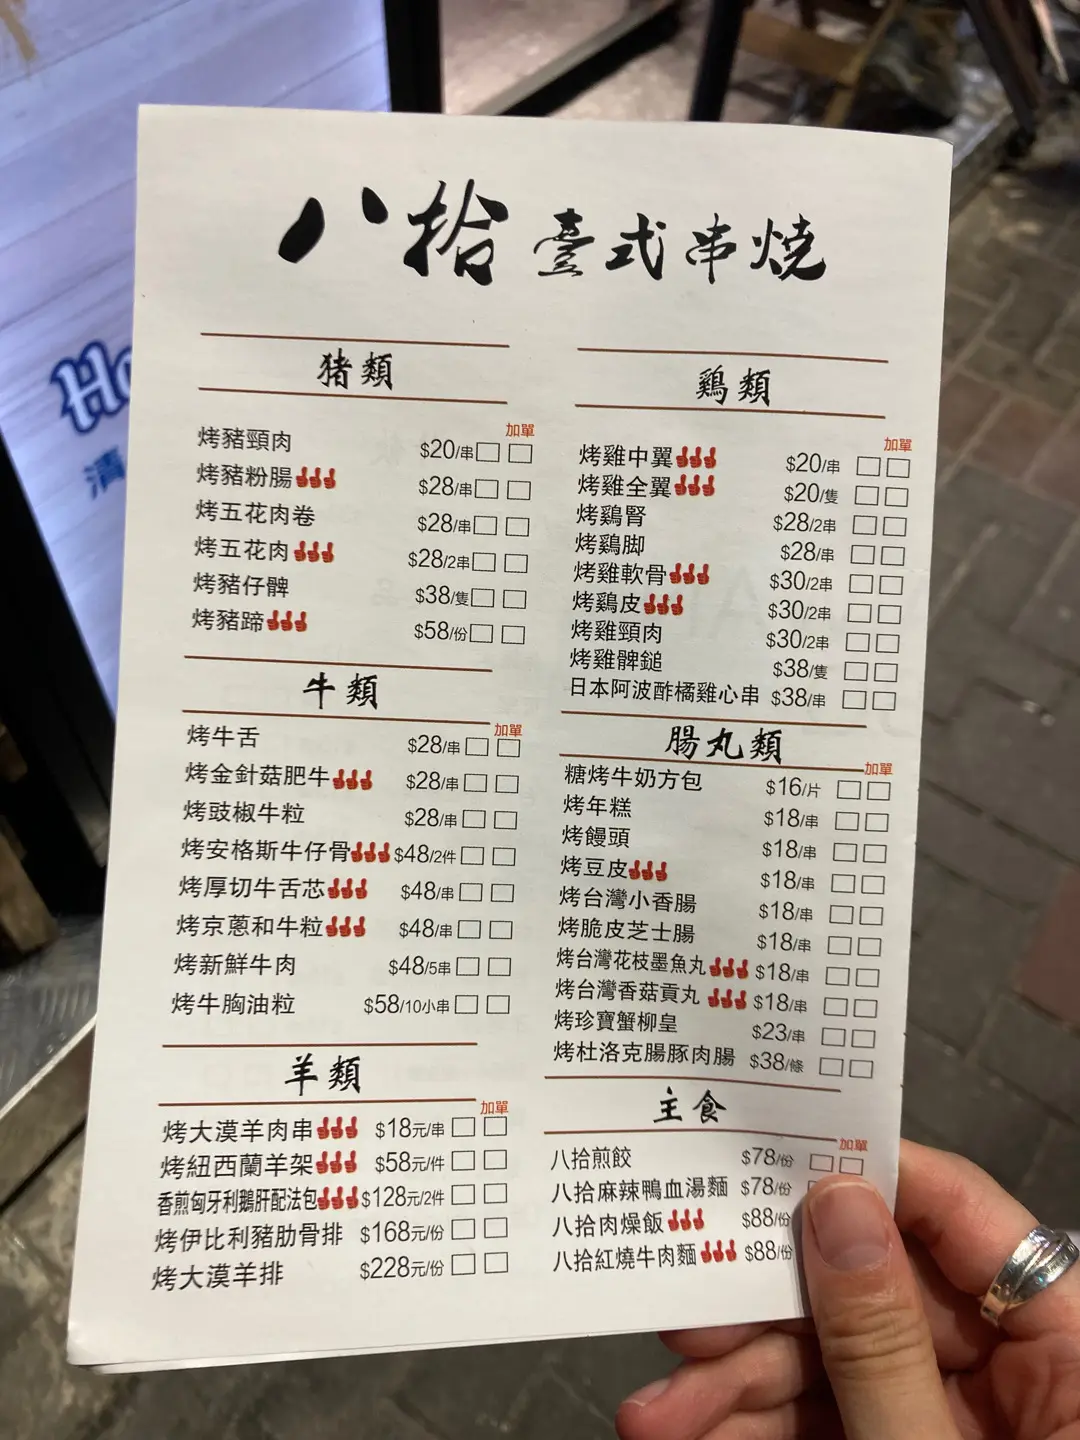 八拾臺式串燒
猪類
加單
烤豬頸肉 $20/串
烤豬粉腸 $28/串
烤五花肉卷 $28/串
烤五花肉 $28/2串
烤豬仔髀 $38/隻
烤豬蹄 $58/份
牛類
加單
烤牛舌 $28/串
烤金針菇肥牛 $28/串
烤豉椒牛粒 $28/串
烤安格斯牛仔骨 $48/2件
烤厚切牛舌芯 $48/串
烤京蔥和牛粒 $48/串
烤新鮮牛肉 $48/5串
烤牛胸油粒 $58/10小串
羊類
加單
烤大漠羊肉串 $18元/串
烤紐西蘭羊架 $58元/件
香煎匈牙利鵝肝配法包 $128元/2件
烤伊比利豬肋骨排 $168元/份
烤大漠羊排 $228元/份
鷄類
加單
烤雞中翼 $20/串
烤雞全翼 $20/隻
烤鷄腎 $28/2串
烤鷄脚 $28/串
烤雞軟骨 $30/2串
烤鷄皮 $30/2串
烤雞頸肉 $30/2串
烤雞髀鎚 $38/隻
日本阿波酢橘雞心串 $38/串
腸丸類
加單
糖烤牛奶方包 $16/片
烤年糕 $18/串
烤饅頭 $18/串
烤豆皮 $18/串
烤台灣小香腸 $18/串
烤脆皮芝士腸 $18/串
烤台灣花枝墨魚丸 $18/串
烤台灣香菇貢丸 $18/串
烤珍寶蟹柳皇 $23/串
烤杜洛克腸豚肉腸 $38/條
主食
加單
八拾煎餃 $78/份
八拾麻辣鴨血湯麵 $78/份
八拾肉燥飯 $88/份
八拾紅燒牛肉麵 $88/份
Ho
清